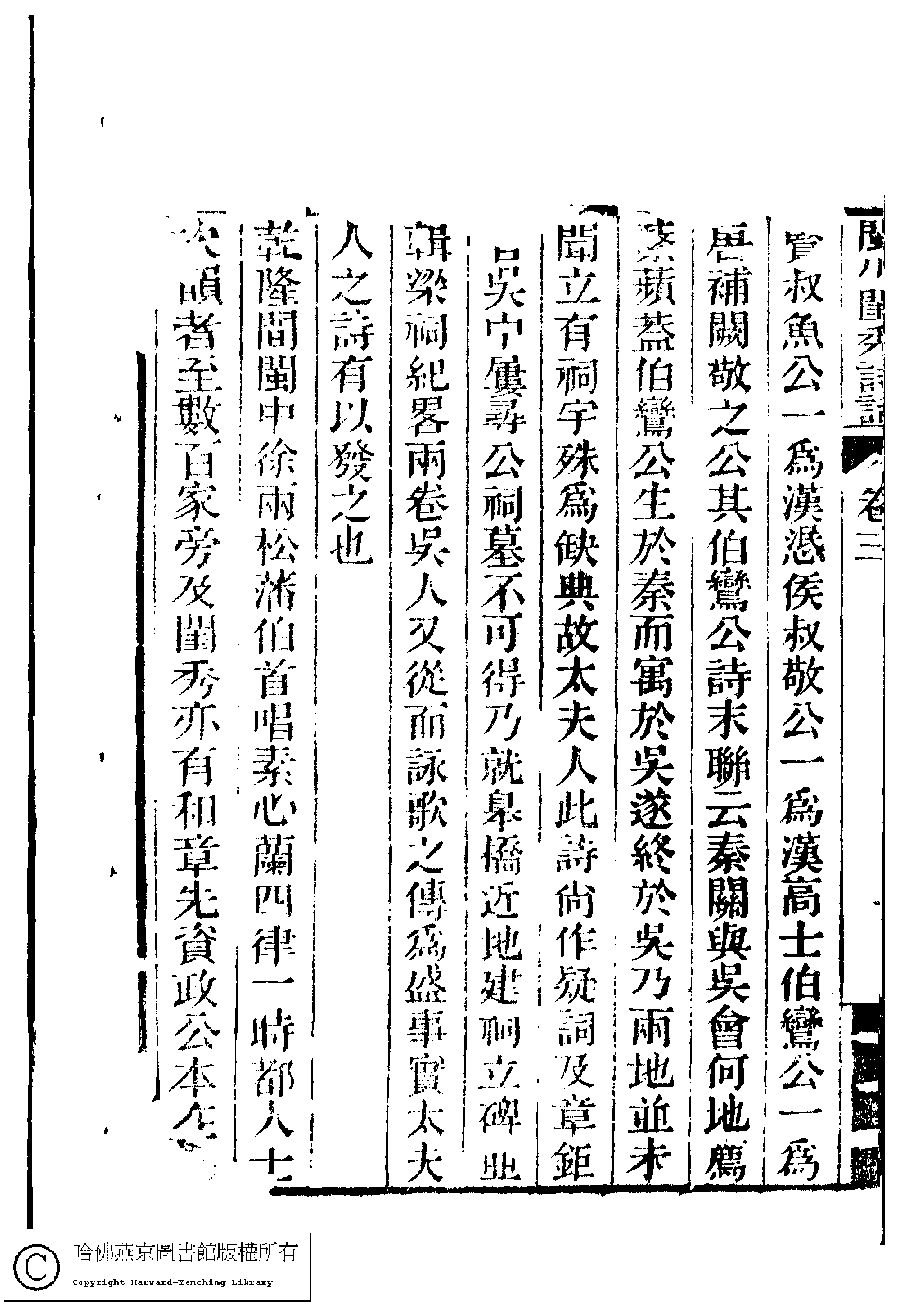 閩川閨秀詩話 卷三
實叔魚公一爲漢愍侯叔敬公一爲漢高士伯鸞公一爲
唐補闕敬之公其伯鸞公詩末聯云秦關與吳會何地薦
藻蘋蓋伯鸞公生於秦而寓於吳遂終於吳乃兩地並未
聞立有祠宇殊爲缺典故太夫人此詩尙作疑詞及章鉅
官吳中屢尋公祠墓不可得乃就皋橋近地建祠立碑並
輯梁祠紀畧兩卷吳人又從而詠歌之傳爲盛事實太夫
人之詩有以發之也
乾隆間閩中徐兩松藩伯首唱素心蘭四律一時都人士
次韻者至數百家旁及閨秀亦有和章先資政公本在
哈佛燕京圖書館版權所有
Copyright Harvard-Yenching Library